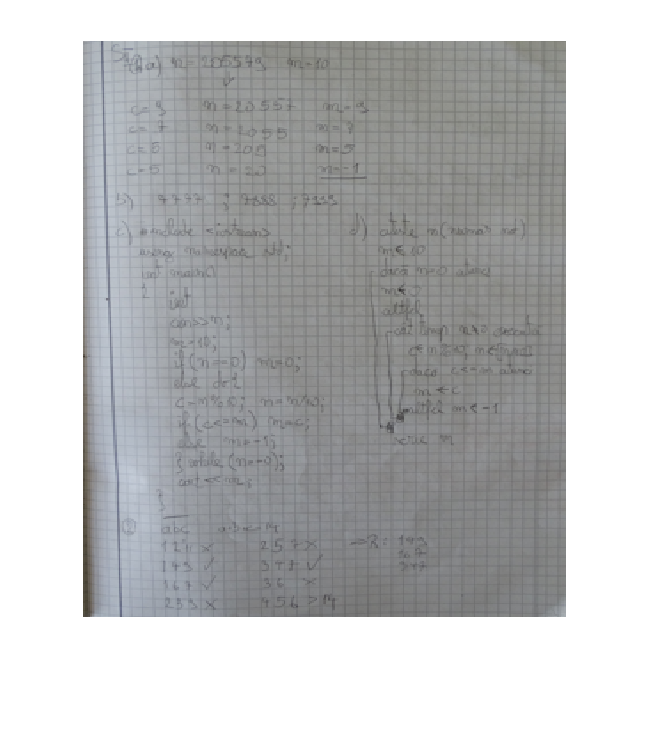 a) n = 205579 m=10
c=9 n=20557 m=9
c=7 n=2055 m=7
c=5 n=205 m=5
c=5 n=20 m=-1
b) 7777 ; 7888 ; 7999
c) #include <iostream>
using namespace std;
int main()
{ int
cin>>n;
m=10;
if (n==0) m=0;
else do{
c=n%10; n=n/10;
if (c<=m) m=c;
else m=-1;
} while (n=0);
cout<<m;
}
d) citeste n (numar nat)
m ← 10
daca n=0 atunci
m ← 0
altfel
cat timp n≠0 executa
daca c<=m atunci
m ← c
altfel m ← -1
scrie m
② abc a·b·c 14
121 x 257 x => R: 149
149 ✓ 347 ✓ 167
167 ✓ 36 x 347
253 x 456 >14